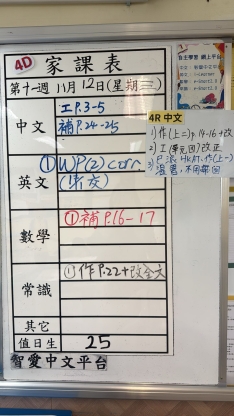 4D
家課表
第十一週 11月12日(星期三)
中文
工P.3-5
補P.24-25
英文
①WP(2) corr.
數學
①補P.16-17
常識
①作P.22+改全文
其它
值日生 25
智愛中文平台
自主學習 網上平台
4R 中文
1)作(上二)p.14-16+改
2)工(單元四)改正